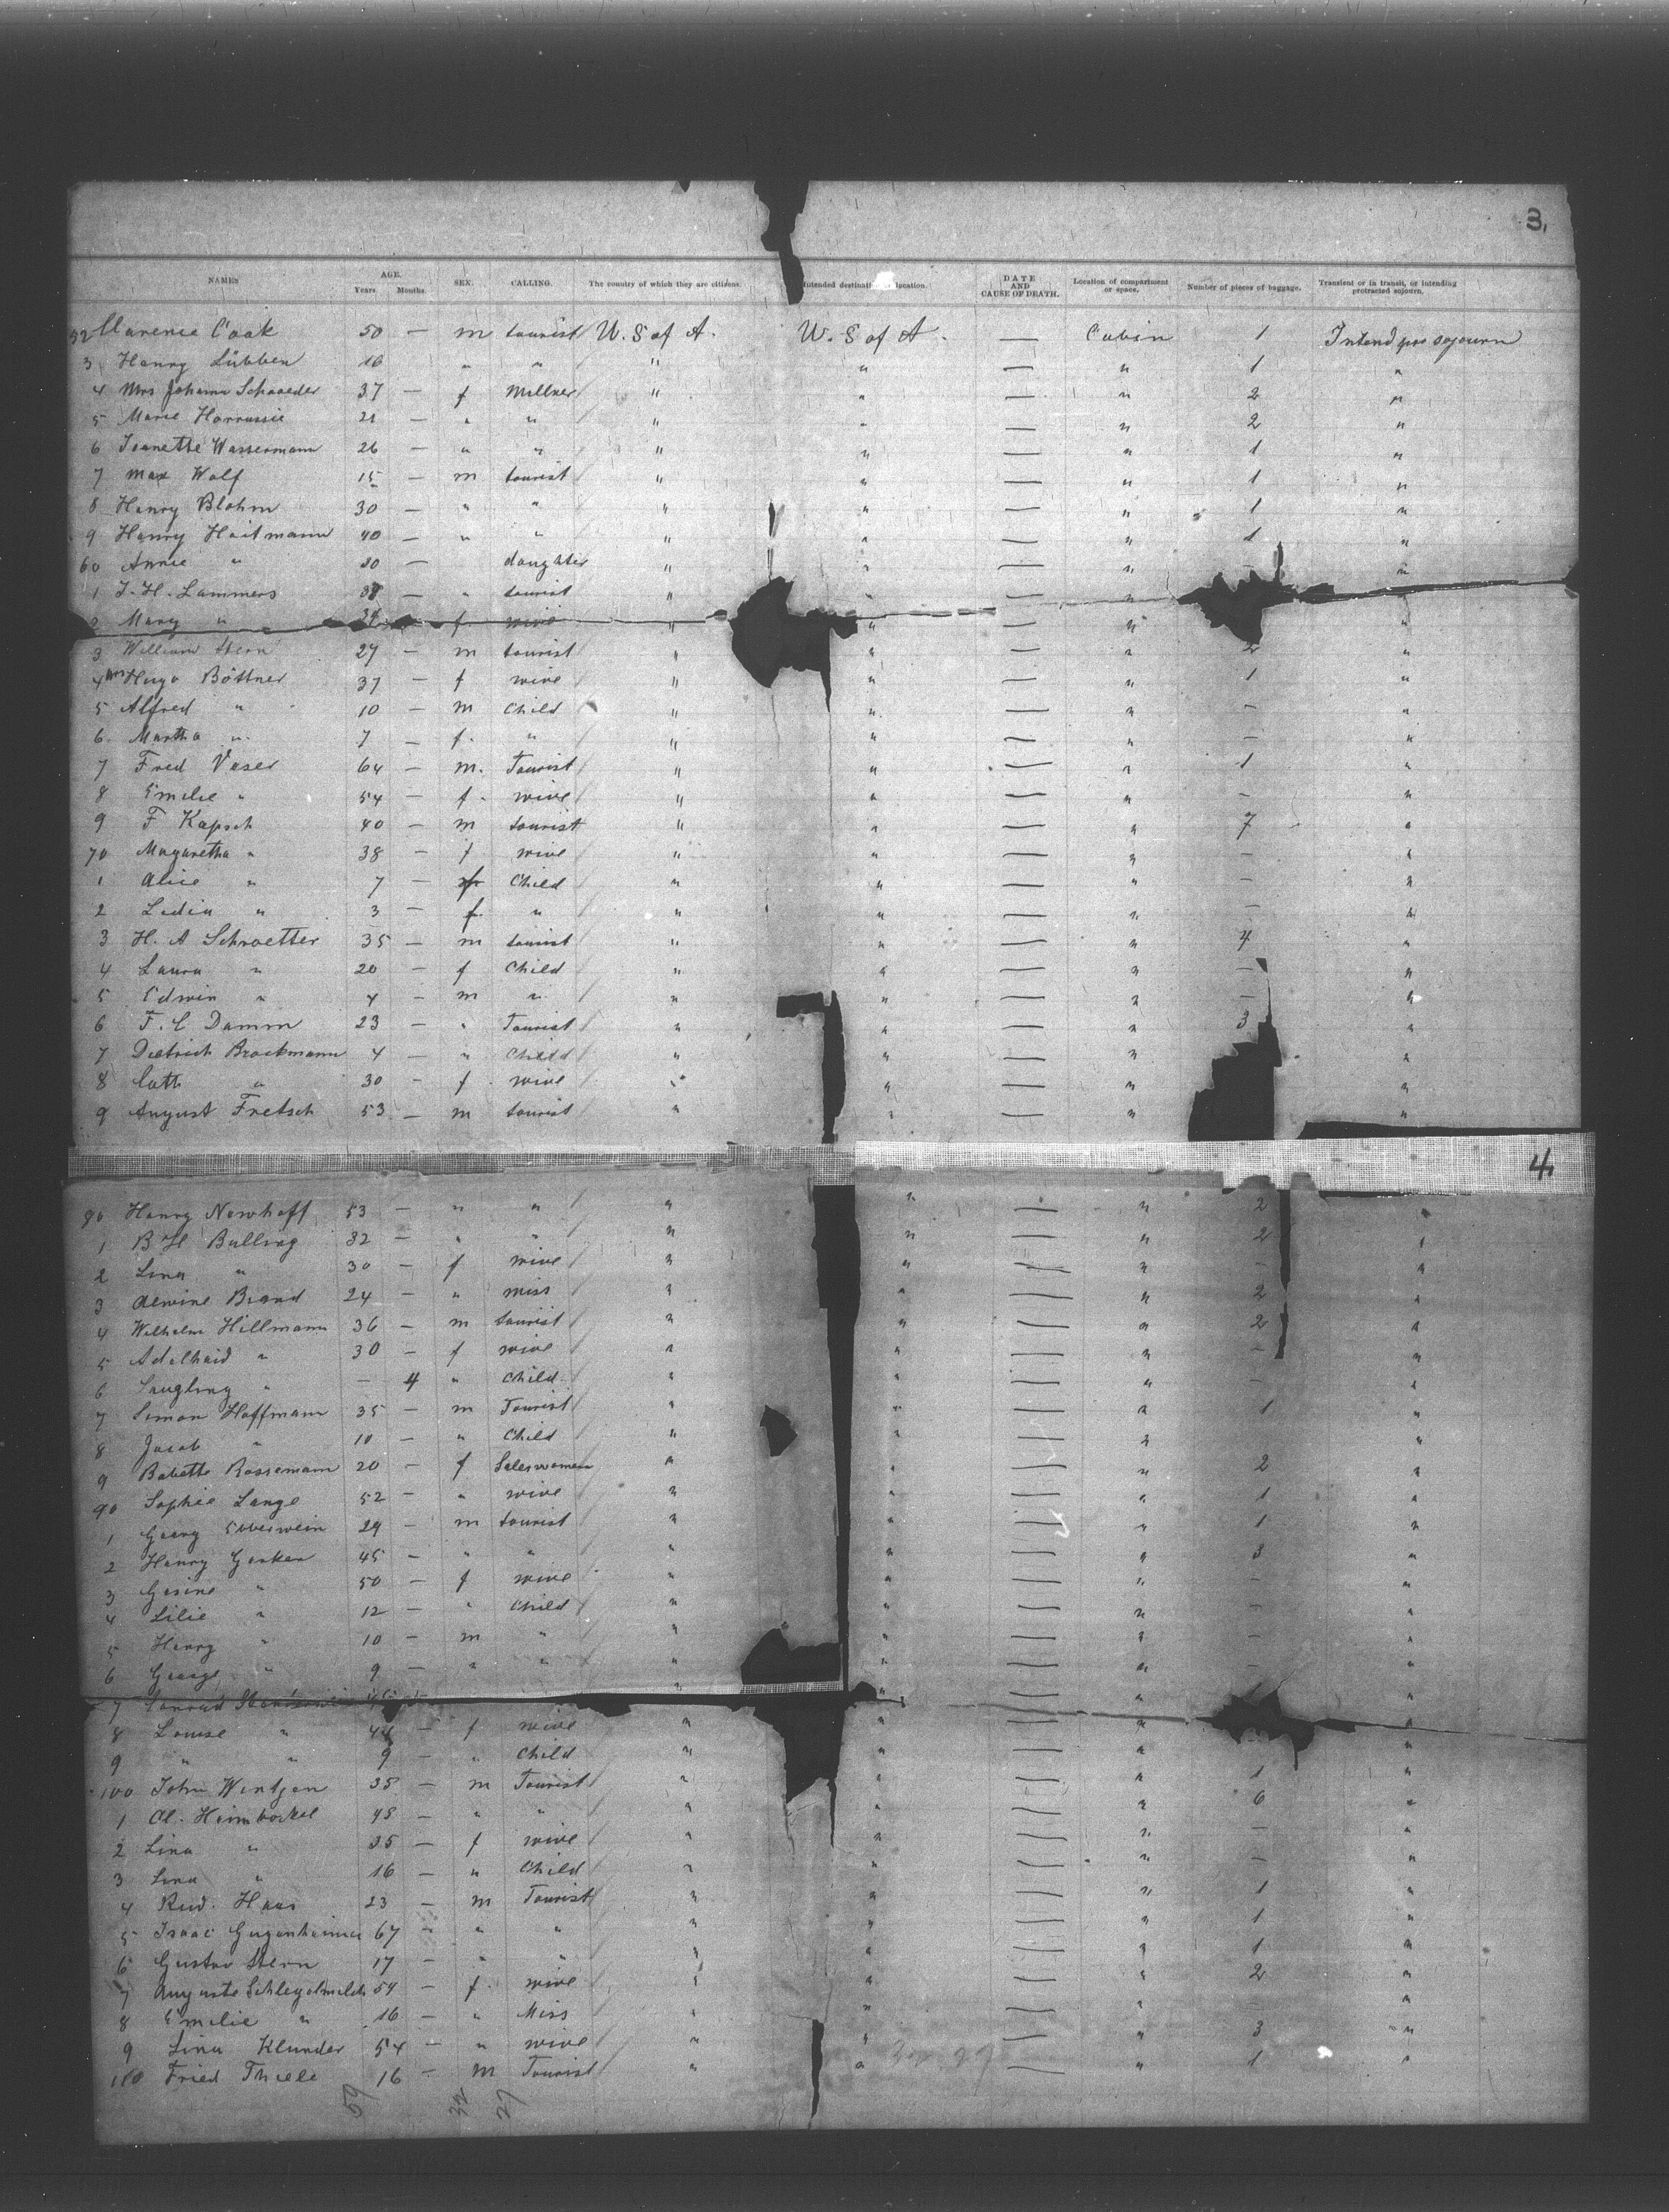 3.
NAMES AGE. Years. Months. SEX. CALLING. The country of which they are citizens. Intended destination location. DATE AND CAUSE OF DEATH. Location of compartment or space. Number of pieces of baggage. Transient or in transit, or intending protracted sojourn.
52 Clarence Cook 50 — m tourist U. S of A. U. S of A. — Cabin 1 Intend pro sojourn
3 Henry Lübben 16 " " " " — " 1 "
4 Mrs Johann Schroeder 37 — f Millner " " — " 2 "
5 Marie 21 — " " " " — " 2 "
6 Jeanette Wassermann 26 — " " " " — " 1 "
7 Max Wolf 15 — m tourist " " — " 1 "
8 Henry Blohm 30 — " " " " — " 1 "
9 Henry Hoitmann 40 — " " " " — " 1 "
60 Annie " 30 — daughter " " — " "
1 J. H. Lammers — " tourist " " — "
2 Mary " — f wive " " — " "
3 William Stern 27 — m tourist " " — " 2 "
4 Mrs Hugo Böttner 37 — f wive " " — " 1 "
5 Alfred " 10 — m Child " " — " — "
6 Martha " 7 — f. " " " — " — "
7 Fred Vaser 64 — m. Tourist " " — " 1 "
8 Emilie " 54 — f. wive " " — " — "
9 F Kapsch 40 — m tourist " " — " 7 "
70 Magaretha " 38 — f wive " " — " — "
1 Alice " 7 — f Child " " — " — "
2 Ledia " 3 — f. " " " — " — "
3 H. A Schroetter 35 — m tourist " " — " 4 "
4 Laura " 20 — f Child " " — " — "
5 Edwin " 4 — m " " " — " — "
6 F. C Damm 23 — " Tourist " " — " 3 "
7 Dietrich Brockmann 4 — " Child " " — " "
8 Cath " 30 — f. wive " " — " "
9 August Fretsch 53 — m tourist " " — " "
4.
80 Henry Newhoff 53 — " " " " — " 2 "
1 B H Bulling 32 — " " " " — " 2 "
2 Lina " 30 — f wive " " — " — "
3 Alwine Brand 24 — " miss " " — " 2 "
4 Wilhelm Hillmann 36 — m tourist " " — " 2 "
5 Adelheid " 30 — f wive " " — " — "
6 Saugling " — 4 " Child " " — " — "
7 Simon Hoffmann 35 — m Tourist " " — " 1 "
8 Jacob " 10 — " Child " " — " "
9 Babette Rossemann 20 — f Saleswomen " " — " 2 "
90 Sophie Lange 52 — " wive " " — " 1 "
1 Georg Ebberwein 29 — m tourist " " — " 1 "
2 Henry Gerken 45 — " " " " — " 3 "
3 Gesine " 50 — f wive " " — " — "
4 Lilie " 12 — " Child " " — " — "
5 Henry " 10 — m " " " — " — "
6 George " 9 — " " " " — " — "
7 Conrad " " — " "
8 Louise " — f wive " " — " "
9 " " 9 — " Child " " — " "
100 John Wintjen 35 — m Tourist " " — " 1 "
1 Cl. Heimbockel 48 — " " " " — " 6 "
2 Lina " 35 — f wive " " — " — "
3 Lina " 16 — " Child " " — " — "
4 Rud. Haas 23 — m Tourist " " — " 1 "
5 Isaac Gugenheimer 67 — " " " " — " 1 "
6 Gustav Stern 17 — " " " " — " 1 "
7 Auguste Schlegelmilch 54 — f. wive " " — " 2 "
8 Emilie " 16 — " Miss " " — " — "
9 Lina Klunder 54 — " wive " " — " 3 "
110 Fried Thiele 16 — m Tourist " " — " 1 "
59 32 27